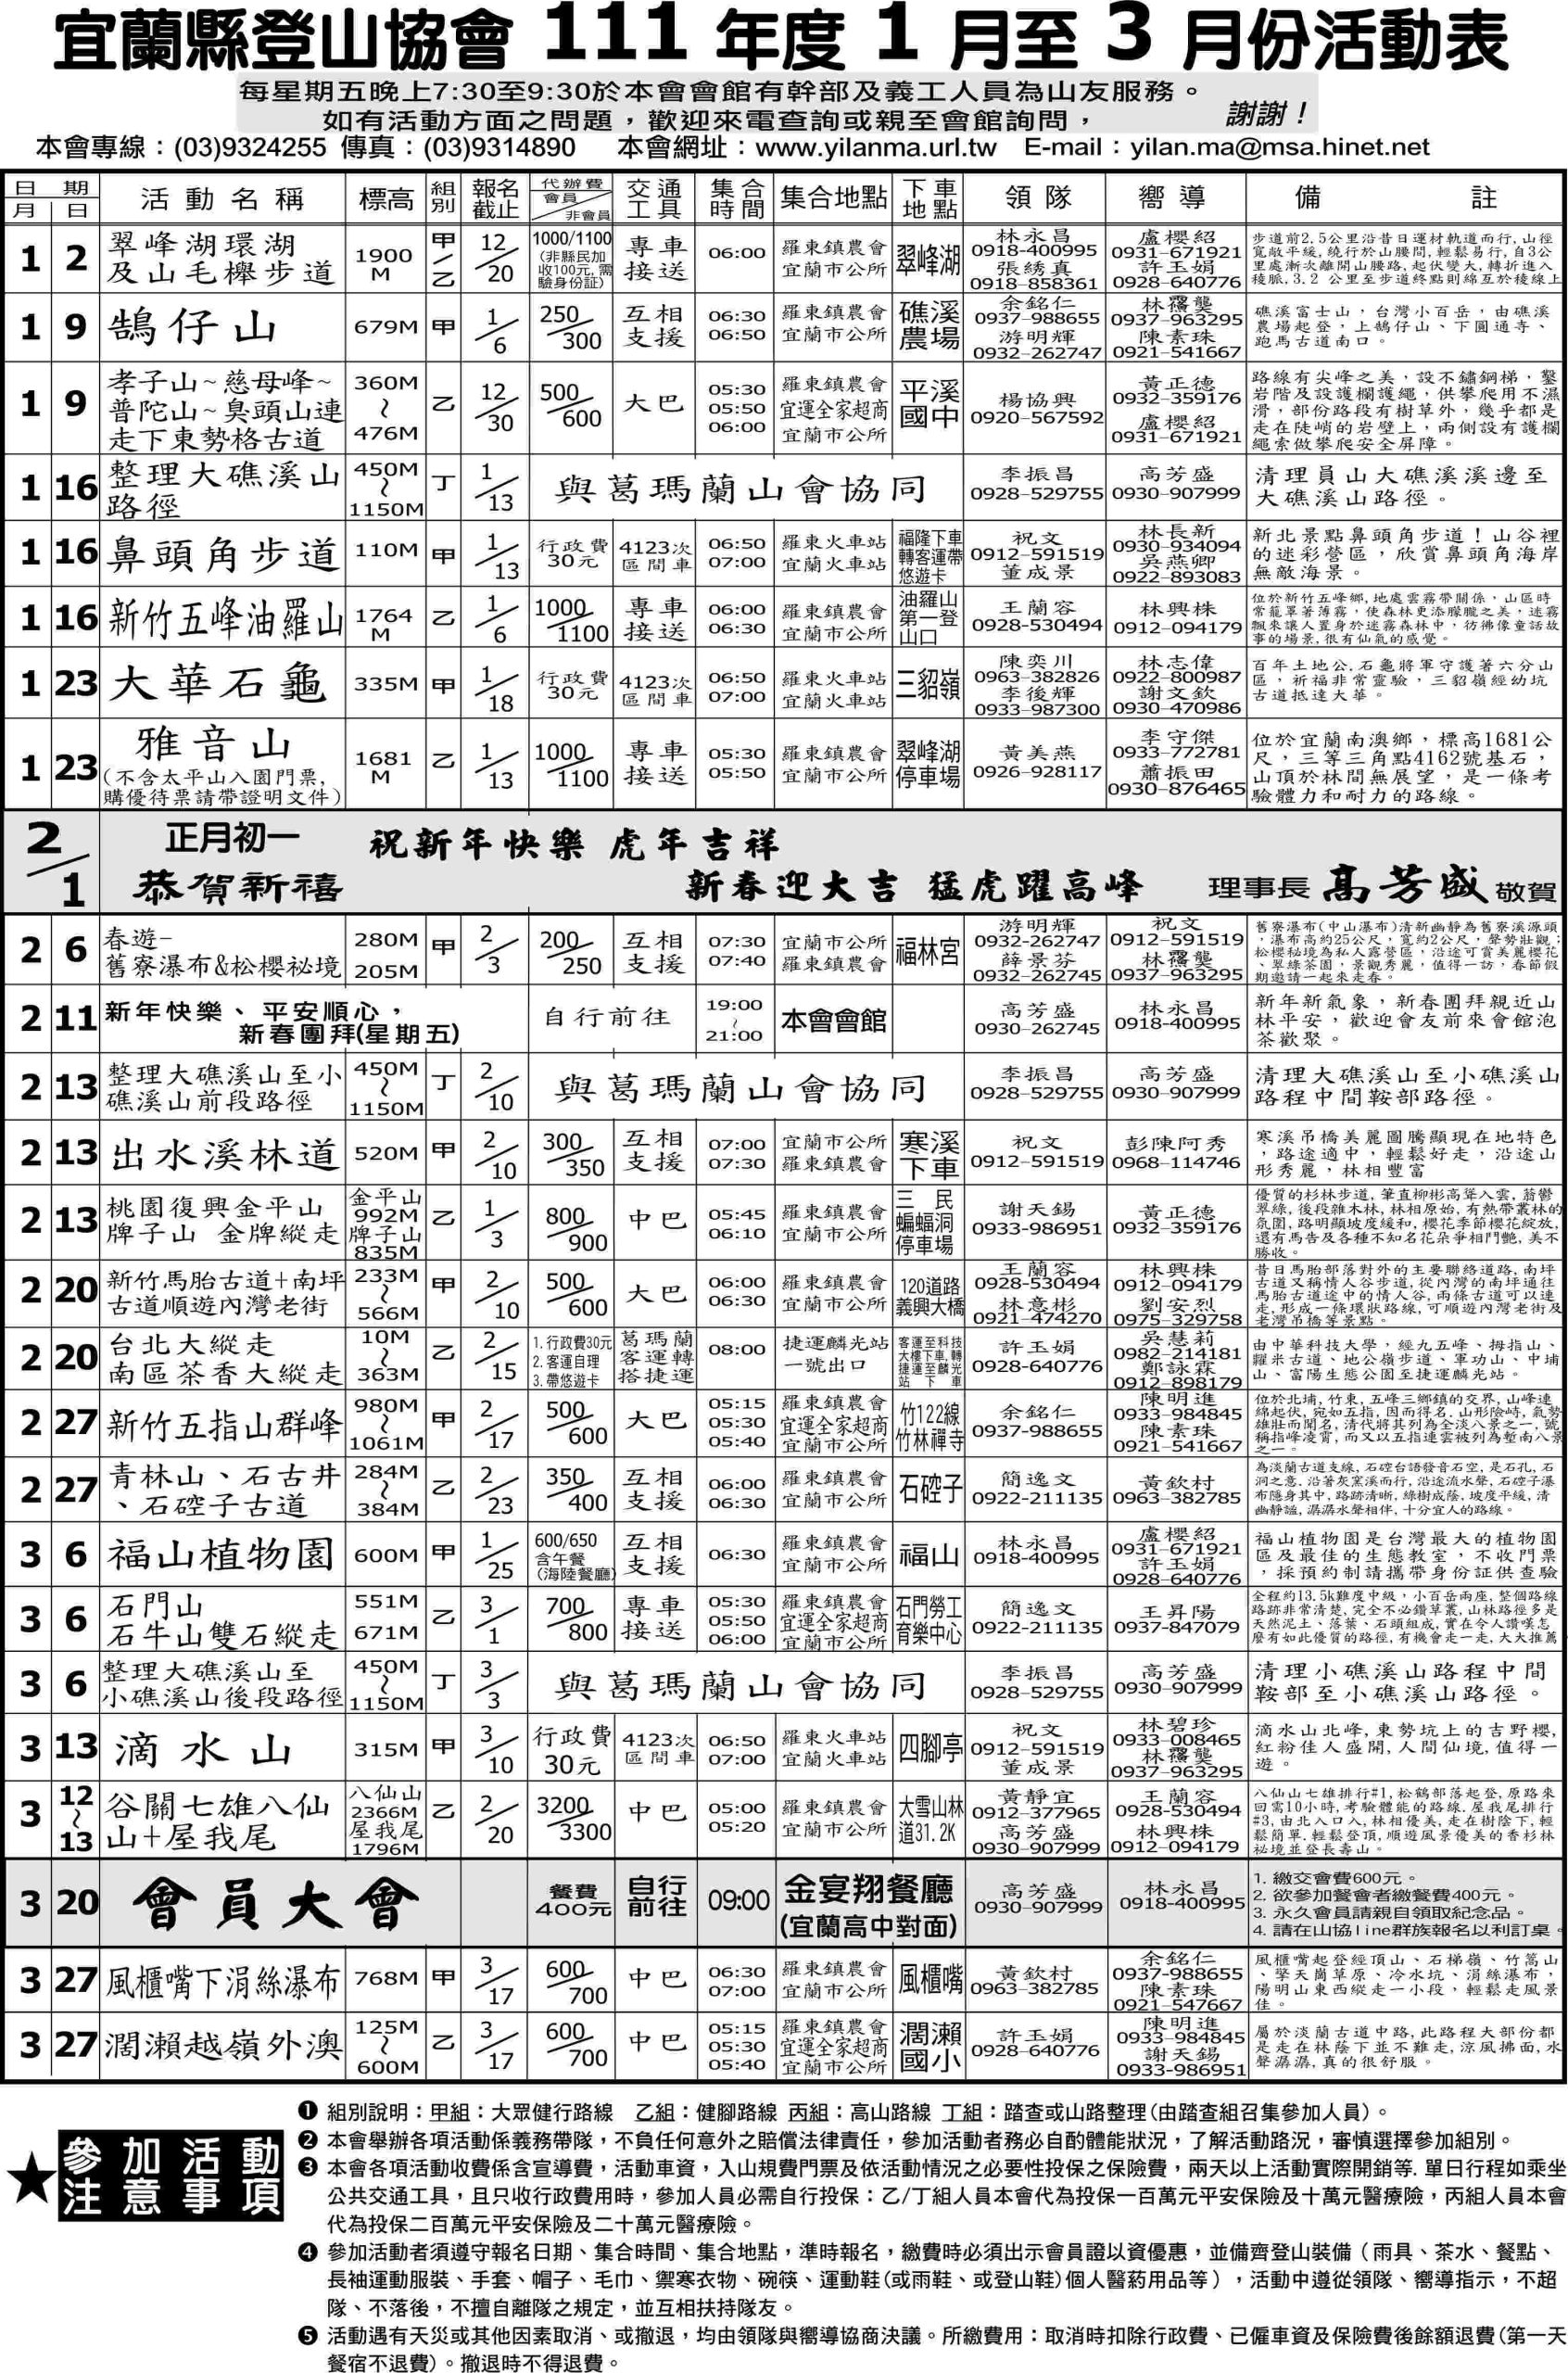 宜蘭縣登山協會 111 年度 1 月至 3 月份活動表
每星期五晚上7:30至9:30於本會會館有幹部及義工人員為山友服務。
如有活動方面之問題，歡迎來電查詢或親至會館詢問， 謝謝！
本會專線：(03)9324255 傳真：(03)9314890 本會網址：www.yilanma.url.tw E-mail：yilan.ma@msa.hinet.net
日期 月 日 活動名稱 標高 組別 報名截止 代辦費 會員/非會員 交通工具 集合時間 集合地點 下車地點 領隊 嚮導 備註
1 2 翠峰湖環湖及山毛櫸步道 1900M 甲/乙 12/20 1000/1100(非縣民加收100元,需驗身份証) 專車接送 06:00 羅東鎮農會 宜蘭市公所 翠峰湖 林永昌 0918-400995 張綉真 0918-858361 盧櫻紹 0931-671921 許玉娟 0928-640776 步道前2.5公里沿昔日運材軌道而行,山徑寬敞平緩,繞行於山腰間,輕鬆易行,自3公里處漸次離開山腰路,起伏變大,轉折進入稜脈,3.2 公里至步道終點則綿亙於稜線上
1 9 鵠仔山 679M 甲 1/6 250/300 互相支援 06:30 06:50 羅東鎮農會 宜蘭市公所 礁溪農場 余銘仁 0937-988655 游明輝 0932-262747 林靏龑 0937-963295 陳素珠 0921-541667 礁溪富士山，台灣小百岳，由礁溪農場起登，上鵠仔山、下圓通寺、跑馬古道南口。
1 9 孝子山~慈母峰~普陀山~臭頭山連走下東勢格古道 360M~476M 乙 12/30 500/600 大巴 05:30 05:50 06:00 羅東鎮農會 宜運全家超商 宜蘭市公所 平溪國中 楊協興 0920-567592 黃正德 0932-359176 盧櫻紹 0931-671921 路線有尖峰之美，設不鏽鋼梯，鑿岩階及設護欄護繩，供攀爬用不濕滑，部份路段有樹草外，幾乎都是走在陡峭的岩壁上，兩側設有護欄繩索做攀爬安全屏障。
1 16 整理大礁溪山路徑 450M~1150M 丁 1/13 與葛瑪蘭山會協同 李振昌 0928-529755 高芳盛 0930-907999 清理員山大礁溪溪邊至大礁溪山路徑。
1 16 鼻頭角步道 110M 甲 1/13 行政費30元 4123次區間車 06:50 07:00 羅東火車站 宜蘭火車站 福隆下車轉客運帶悠遊卡 祝文 0912-591519 董成景 林長新 0930-934094 吳燕卿 0922-893083 新北景點鼻頭角步道！山谷裡的迷彩營區，欣賞鼻頭角海岸無敵海景。
1 16 新竹五峰油羅山 1764M 乙 1/6 1000/1100 專車接送 06:00 06:30 羅東鎮農會 宜蘭市公所 油羅山第一登山口 王蘭容 0928-530494 林興株 0912-094179 位於新竹五峰鄉,地處雲霧帶關係,山區時常籠罩著薄霧,使森林更添朦朧之美,迷霧飄來讓人置身於迷霧森林中,彷彿像童話故事的場景,很有仙氣的感覺。
1 23 大華石龜 335M 甲 1/18 行政費30元 4123次區間車 06:50 07:00 羅東火車站 宜蘭火車站 三貂嶺 陳奕川 0963-382826 李後輝 0933-987300 林志偉 0922-800987 謝文欽 0930-470986 百年土地公,石龜將軍守護著六分山區，祈福非常靈驗，三貂嶺經幼坑古道抵達大華。
1 23 雅音山(不含太平山入園門票,購優待票請帶證明文件) 1681M 乙 1/13 1000/1100 專車接送 05:30 05:50 羅東鎮農會 宜蘭市公所 翠峰湖停車場 黃美燕 0926-928117 李守傑 0933-772781 蕭振田 0930-876465 位於宜蘭南澳鄉，標高1681公尺，三等三角點4162號基石，山頂於林間無展望，是一條考驗體力和耐力的路線。
2/1 正月初一 祝新年快樂 虎年吉祥
恭賀新禧 新春迎大吉 猛虎躍高峰 理事長 高芳盛 敬賀
2 6 春遊-舊寮瀑布&松櫻祕境 280M 205M 甲 2/3 200/250 互相支援 07:30 07:40 宜蘭市公所 羅東鎮農會 福林宮 游明輝 0932-262747 薛景芬 0932-262745 祝文 0912-591519 林靏龑 0937-963295 舊寮瀑布(中山瀑布)清新幽靜為舊寮溪源頭，瀑布高約25公尺，寬約2公尺，聲勢壯觀；松櫻秘境為私人露營區，沿途可賞美麗櫻花、翠綠茶園，景觀秀麗，值得一訪，春節假期邀請一起來走春。
2 11 新年快樂、平安順心，新春團拜(星期五) 自行前往 19:00~21:00 本會會館 高芳盛 0930-262745 林永昌 0918-400995 新年新氣象，新春團拜親近山林平安，歡迎會友前來會館泡茶歡聚。
2 13 整理大礁溪山至小礁溪山前段路徑 450M~1150M 丁 2/10 與葛瑪蘭山會協同 李振昌 0928-529755 高芳盛 0930-907999 清理大礁溪山至小礁溪山路程中間鞍部路徑。
2 13 出水溪林道 520M 甲 2/10 300/350 互相支援 07:00 07:30 宜蘭市公所 羅東鎮農會 寒溪下車 祝文 0912-591519 彭陳阿秀 0968-114746 寒溪吊橋美麗圖騰顯現在地特色，路途適中，輕鬆好走，沿途山形秀麗，林相豐富
2 13 桃園復興金平山牌子山 金牌縱走 金平山992M 牌子山835M 乙 1/3 800/900 中巴 05:45 06:10 羅東鎮農會 宜蘭市公所 三民蝙蝠洞停車場 謝天錫 0933-986951 黃正德 0932-359176 優質的杉林步道,筆直柳彬高聳入雲,蓊鬱翠綠,後段雜木林,林相原始,有熱帶叢林的氛圍,路明顯坡度緩和,櫻花季節櫻花綻放,還有馬告及各種不知名花朵爭相鬥艷,美不勝收。
2 20 新竹馬胎古道+南坪古道順遊內灣老街 233M~566M 甲 2/10 500/600 大巴 06:00 06:30 羅東鎮農會 宜蘭市公所 120道路義興大橋 王蘭容 0928-530494 林意彬 0921-474270 林興株 0912-094179 劉安烈 0975-329758 昔日馬胎部落對外的主要聯絡道路,南坪古道又稱情人谷步道,從內灣的南坪通往馬胎古道途中的情人谷,兩條古道可以連走,形成一條環狀路線,可順遊內灣老街及老灣吊橋等景點。
2 20 台北大縱走南區茶香大縱走 10M~363M 乙 2/15 1.行政費30元 2.客運自理 3.帶悠遊卡 葛瑪蘭客運轉搭捷運 08:00 捷運麟光站一號出口 客運至科技大樓下車,轉捷運至麟光站下車 許玉娟 0928-640776 吳慧莉 0982-214181 鄭詠霖 0912-898179 由中華科技大學，經九五峰、拇指山、糶米古道、地公嶺步道、軍功山、中埔山、富陽生態公園至捷運麟光站。
2 27 新竹五指山群峰 980M~1061M 甲 2/17 500/600 大巴 05:15 05:30 05:40 羅東鎮農會 宜運全家超商 宜蘭市公所 竹122線竹林禪寺 余銘仁 0937-988655 陳明進 0933-984845 陳素珠 0921-541667 位於北埔,竹東,五峰三鄉鎮的交界,山峰連綿起伏,宛如五指,因而得名,山形險峙,氣勢雄壯而聞名,清代將其列為全淡八景之一,號稱指峰凌霄,而又以五指連雲被列為塹南八景之一。
2 27 青林山、石古井、石硿子古道 284M~384M 乙 2/23 350/400 互相支援 06:00 06:30 羅東鎮農會 宜蘭市公所 石硿子 簡逸文 0922-211135 黃欽村 0963-382785 為淡蘭古道支線,石硿台語發音石空,是石孔,石洞之意,沿著灰窯溪而行,沿途流水聲,石硿子瀑布隱身其中,路跡清晰,綠樹成蔭,坡度平緩,清幽靜謐,潺潺水聲相伴,十分宜人的路線。
3 6 福山植物園 600M 甲 1/25 600/650含午餐(海陸餐廳) 互相支援 06:30 羅東鎮農會 宜蘭市公所 福山 林永昌 0918-400995 盧櫻紹 0931-671921 許玉娟 0928-640776 福山植物園是台灣最大的植物園區及最佳的生態教室，不收門票，採預約制請攜帶身份証供查驗
3 6 石門山石牛山雙石縱走 551M 671M 乙 3/1 700/800 專車接送 05:30 05:50 06:00 羅東鎮農會 宜運全家超商 宜蘭市公所 石門勞工育樂中心 簡逸文 0922-211135 王昇陽 0937-847079 全程約13.5k難度中級，小百岳兩座,整個路線路跡非常清楚,完全不必鑽草叢,山林路徑多是天然泥土、落葉、石頭組成,實在令人讚嘆怎麼有如此優質的路徑,有機會走一走,大大推薦
3 6 整理大礁溪山至小礁溪山後段路徑 450M~1150M 丁 3/3 與葛瑪蘭山會協同 李振昌 0928-529755 高芳盛 0930-907999 清理小礁溪山路程中間鞍部至小礁溪山路徑。
3 13 滴水山 315M 甲 3/10 行政費30元 4123次區間車 06:50 07:00 羅東火車站 宜蘭火車站 四腳亭 祝文 0912-591519 董成景 林碧珍 0933-008465 林靏龑 0937-963295 滴水山北峰,東勢坑上的吉野櫻,紅粉佳人盛開,人間仙境,值得一遊。
3 12~13 谷關七雄八仙山+屋我尾 八仙山2366M 屋我尾1796M 乙 2/20 3200/3300 中巴 05:00 05:20 羅東鎮農會 宜蘭市公所 大雪山林道31.2K 黃靜宜 0912-377965 高芳盛 0930-907999 王蘭容 0928-530494 林興株 0912-094179 八仙山七雄排行#1,松鶴部落起登,原路來回需10小時,考驗體能的路線.屋我尾排行#3,由北入口入,林相優美,走在樹陰下,輕鬆簡單.輕鬆登頂,順遊風景優美的香杉林祕境並登長壽山。
3 20 會員大會 餐費400元 自行前往 09:00 金宴翔餐廳(宜蘭高中對面) 高芳盛 0930-907999 林永昌 0918-400995 1. 繳交會費600元。 2. 欲參加餐會者繳餐費400元。 3. 永久會員請親自領取紀念品。 4. 請在山協line群族報名以利訂桌。
3 27 風櫃嘴下涓絲瀑布 768M 甲 3/17 600/700 中巴 06:30 07:00 羅東鎮農會 宜蘭市公所 風櫃嘴 黃欽村 0963-382785 余銘仁 0937-988655 陳素珠 0921-547667 風櫃嘴起登經頂山、石梯嶺、竹篙山、擎天崗草原、冷水坑、涓絲瀑布，陽明山東西縱走一小段，輕鬆走風景佳。
3 27 濶瀨越嶺外澳 125M~600M 乙 3/17 600/700 中巴 05:15 05:30 05:40 羅東鎮農會 宜運全家超商 宜蘭市公所 濶瀨國小 許玉娟 0928-640776 陳明進 0933-984845 謝天錫 0933-986951 屬於淡蘭古道中路,此路程大部份都是走在林蔭下並不難走,涼風拂面,水聲潺潺,真的很舒服。
★參加活動注意事項
❶ 組別說明：甲組：大眾健行路線 乙組：健腳路線 丙組：高山路線 丁組：踏查或山路整理(由踏查組召集參加人員)。
❷ 本會舉辦各項活動係義務帶隊，不負任何意外之賠償法律責任，參加活動者務必自酌體能狀況，了解活動路況，審慎選擇參加組別。
❸ 本會各項活動收費係含宣導費，活動車資，入山規費門票及依活動情況之必要性投保之保險費，兩天以上活動實際開銷等. 單日行程如乘坐
公共交通工具，且只收行政費用時，參加人員必需自行投保：乙/丁組人員本會代為投保一百萬元平安保險及十萬元醫療險，丙組人員本會
代為投保二百萬元平安保險及二十萬元醫療險。
❹ 參加活動者須遵守報名日期、集合時間、集合地點，準時報名，繳費時必須出示會員證以資優惠，並備齊登山裝備（雨具、茶水、餐點、
長袖運動服裝、手套、帽子、毛巾、禦寒衣物、碗筷、運動鞋(或雨鞋、或登山鞋)個人醫葯用品等），活動中遵從領隊、嚮導指示，不超
隊、不落後，不擅自離隊之規定，並互相扶持隊友。
❺ 活動遇有天災或其他因素取消、或撤退，均由領隊與嚮導協商決議。所繳費用：取消時扣除行政費、已僱車資及保險費後餘額退費(第一天
餐宿不退費)。撤退時不得退費。